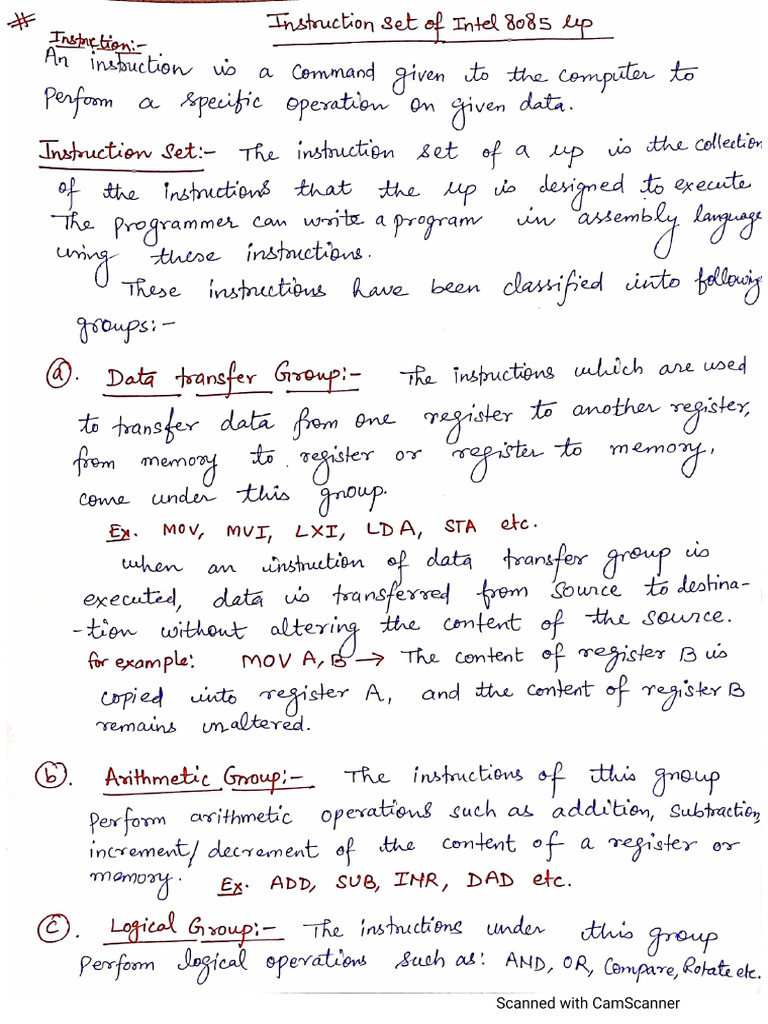 # Instruction set of Intel 8085 up
Instnction:-
An instruction is a command given to the computer to
Perform a specific operation on given data.
Instruction Set:- The instruction set of a up is the collection
of the instructions that the up is designed to execute
The programmer can write a program in assembly language
using these instructions.
These instructions have been classified into following
groups:-
(a). Data transfer Group:- The instructions which are used
to transfer data from one register to another register,
from memory to register or register to memory,
come under this group.
Ex. MOV, MVI, LXI, LDA, STA etc.
when an instruction of data transfer group is
executed, data is transferred from source to destina-
-tion without altering the content of the source.
for example: MOV A, B → The content of register B is
copied into register A, and the content of register B
remains unaltered.
(b). Arithmetic Group:- The instructions of this group
Perform arithmetic operations such as addition, subtraction,
increment/decrement of the content of a register or
memory. Ex. ADD, SUB, INR, DAD etc.
(c). Logical Group:- The instructions under this group
Perform logical operations such as: AND, OR, Compare, Rotate etc.
Scanned with CamScanner